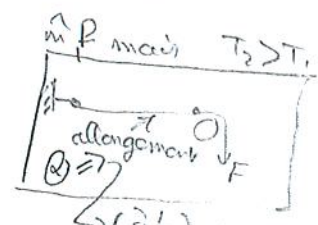 m̂ f mais T₂ > T₁
allongement
F
Q ⇒